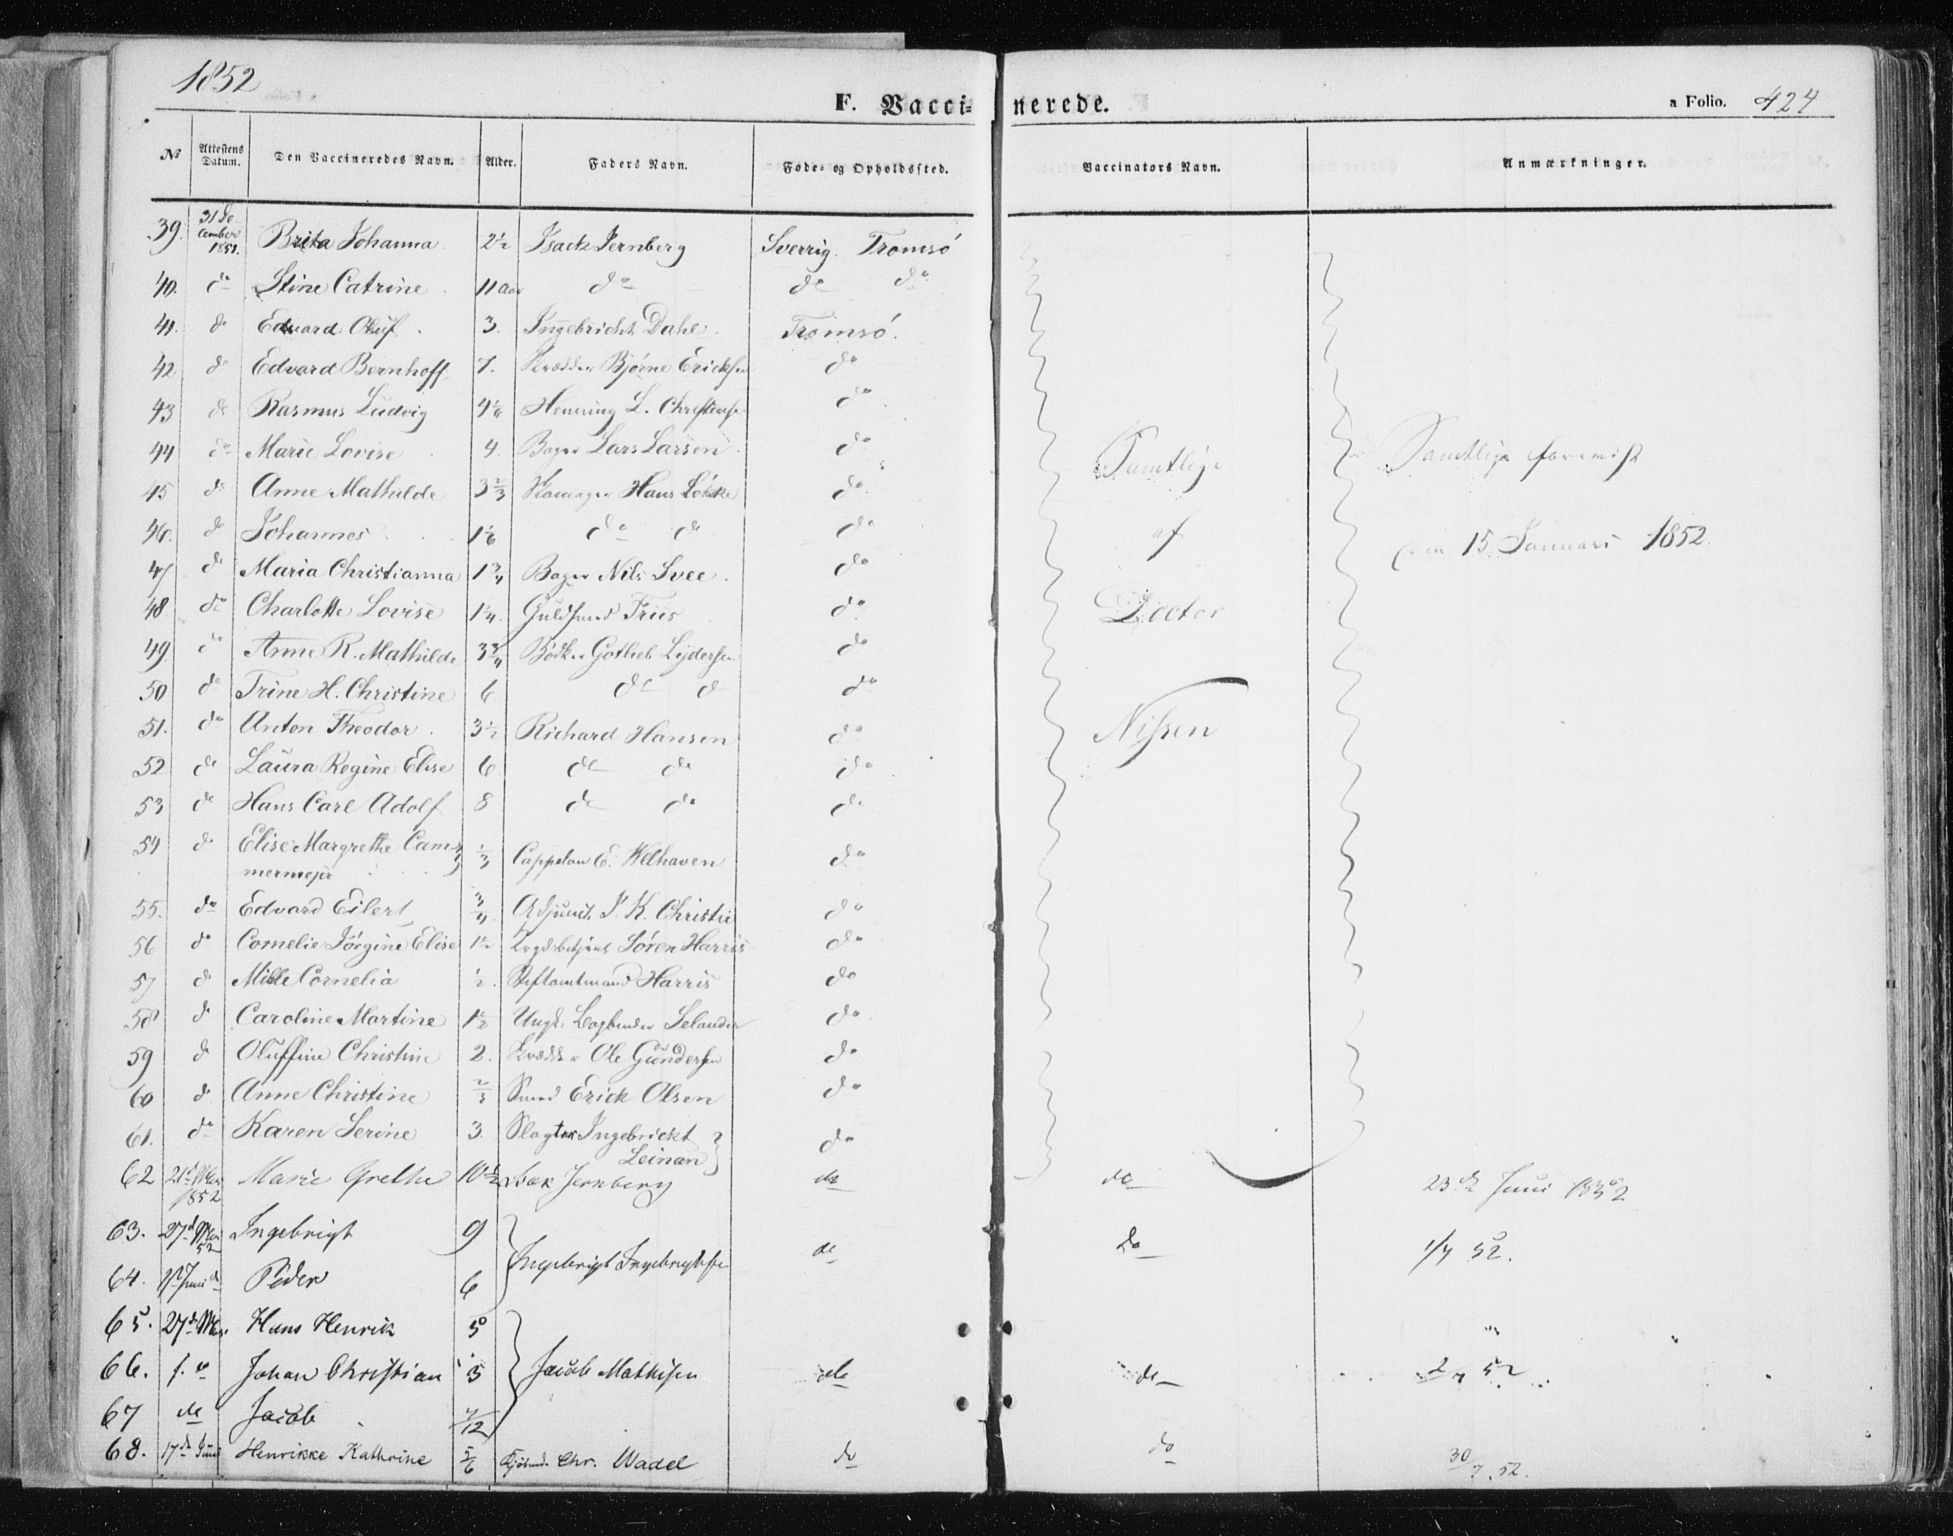 1852
F. Vacci- nerede.
a Folio. 424
No Attestens Datum. Den Vaccineredes Navn. Alder. Faders Navn. Føde- og Opholdssted. Vaccinators Navn. Anmærkninger.
39. 31 De cember 1851. Brita Johanna 2 1/2 Isack Jernberg Sverrig. Tromsö
40. do Stine Catrine 11 Aar do do do
41. do Edvard Oluf. 3. Ingebricht Dahl. Tromsö.
42 do Edvard Bernhoff 7. Skrædder Bjørne Ericksen do
43 do Rasmus Ludvig 4 1/6 Henning L. Christensen do
44 do Marie Lovise 4. Bager Lars Larsen do
45 do Anne Mathilde 3 2/3 Skomager Hans do
46. do Johannes 1 1/6 do do do
47 do Maria Christianna 1 3/4 Bager Nils Svee. do
48 do Charlotte Lovise 1 1/4. Guldsmed Friis do
49 do Anne R. Mathilde 3 3/4 Bødker Gotlieb Lydersen do
50 do Trine H. Christine 6 do do do
51. do Anton Theodor. 3 1/2 Richard Hansen do
52 do Laura Regine Elise 6 do do do
53 do Hans Carl Adolf 8 do do do
54 do Elise Margrethe Cam-
mermejer 1/3 Cappelan E. Welhaven do
55. do Edvard Eilert 3/4. Adjunct J. K. Christie do
56 do Cornelie Jörgine Elise 1 1/2 Sören Harris do
57 do Mille Cornelia 1/2. Stiftamtmand Harris do
58 do Caroline Martine 1 1/2 Ungk. Bogbinder Selander do
59 do Oluffine Christine 2. Skrædder Ole Gundersen do
60 do Anne Christine 2/3 Smed Erick Olsen do
61. do Karen Serine 3. Slagter Ingebrickt
Leinan do
Samtlige
af
Doctor
Nissen
Samtlige foreviist
den 15. Januari 1852.
62 21d Mai 1852 Marie Grethe 10 1/2 Isak Jernberg do do 23de Juni 1852
63. 27d Mai 52 Ingebrigt 9 Ingebrigt Ingebrigtsen do Do 1/7 52.
64. Juni Peder 6
65. 27d Mai Hans Henrik 5 "
66. Johan Christian 3 Jacob Mathisen do do 2/7 52
67 do Jacob 7/12
68. 17de Juni Henrikke Kathrine 5/6 Kjöbmd. Chr. Wadel do do 30/7. 52.